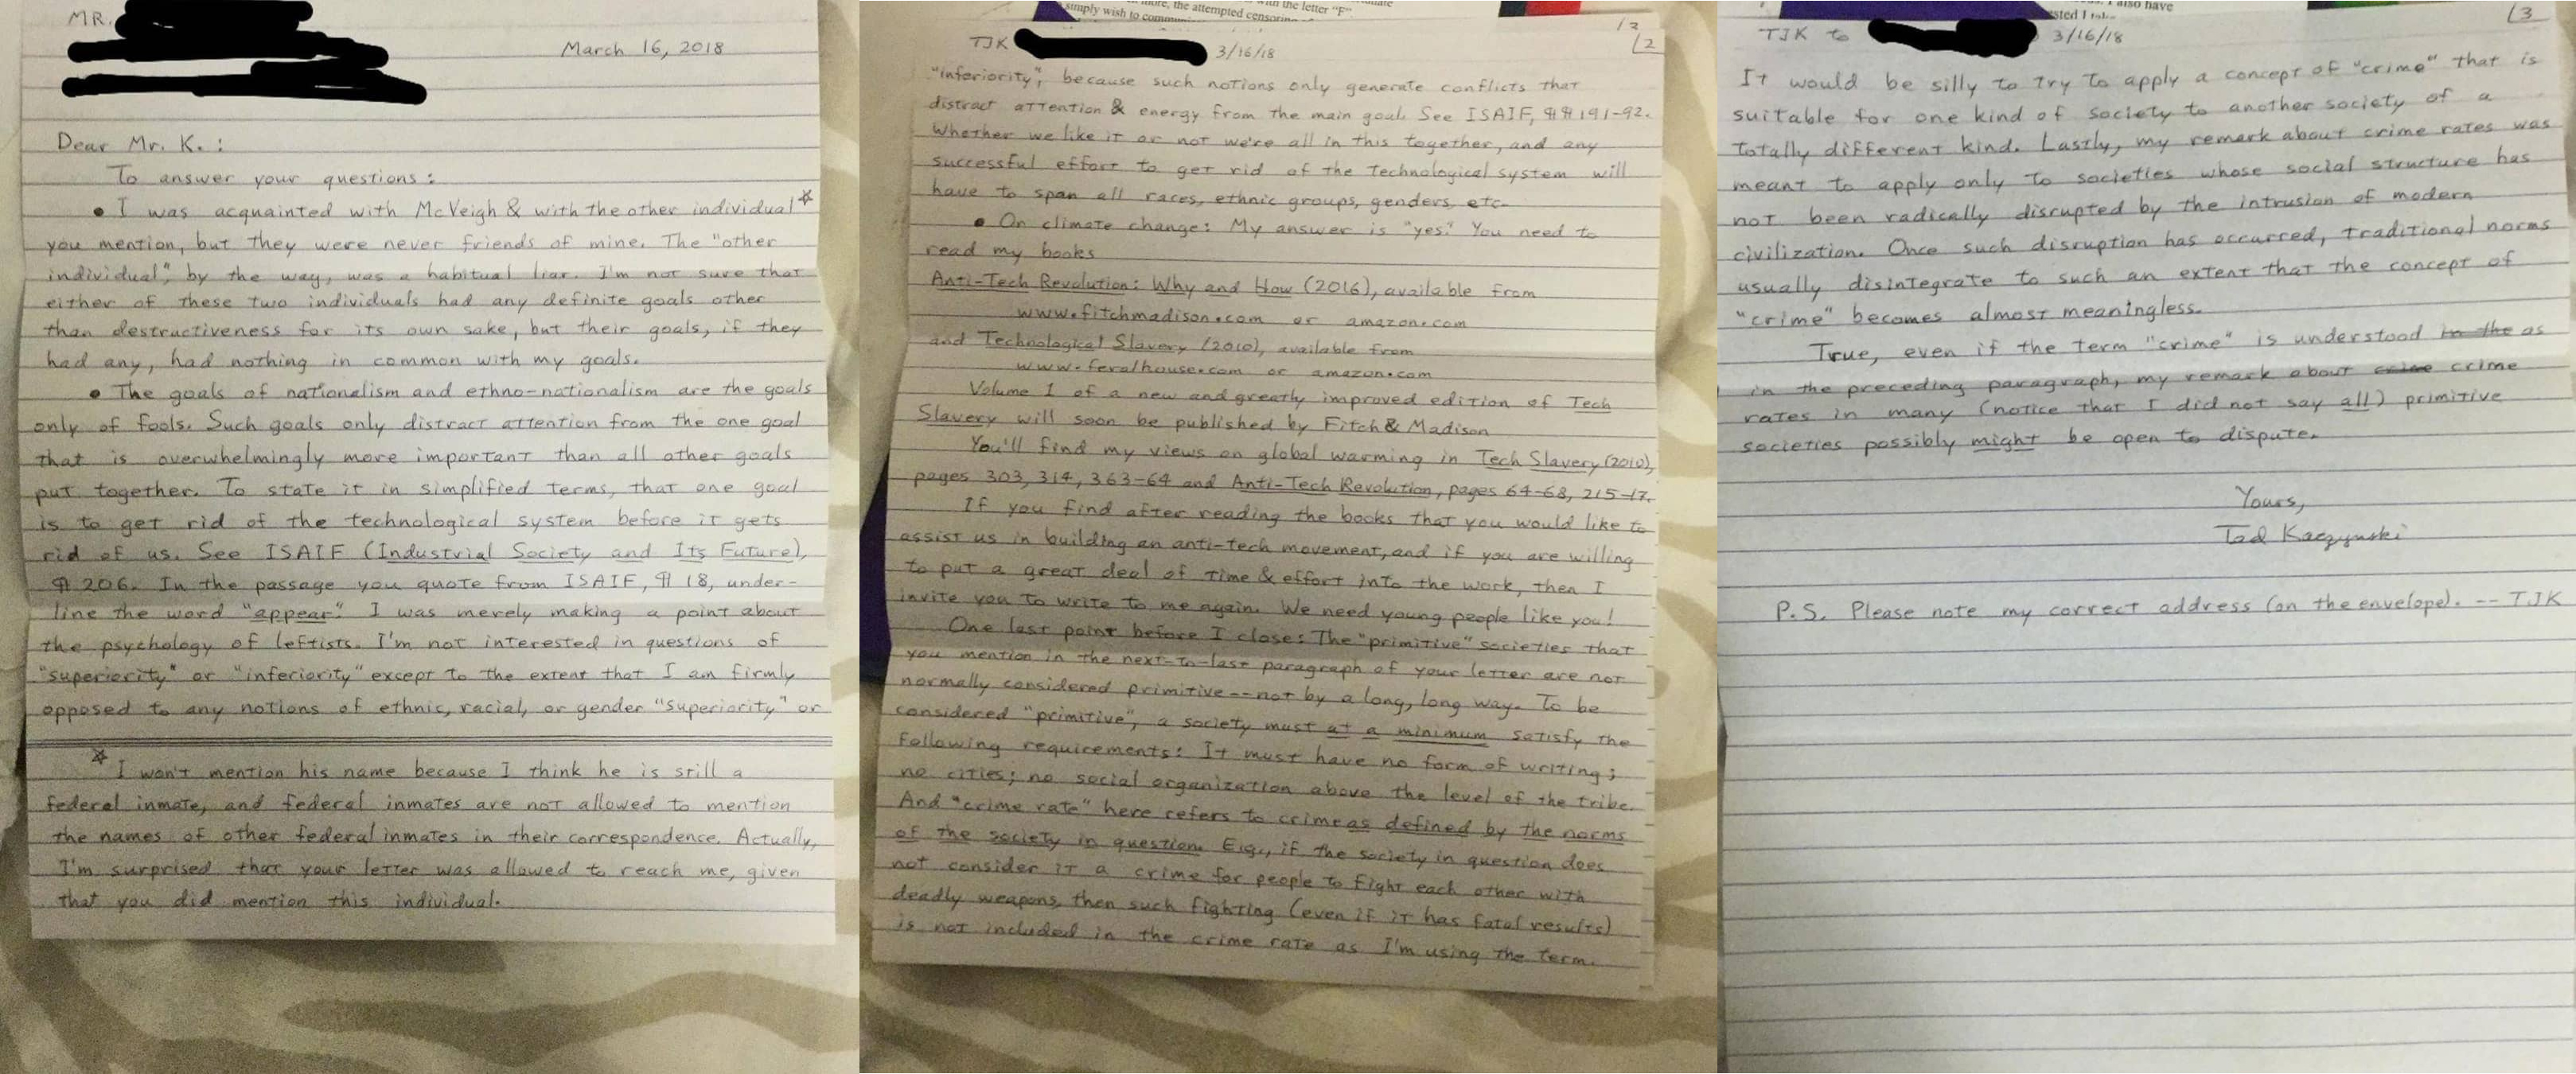 MR.
March 16, 2018
Dear Mr. K.:
To answer your questions:
• I was acquainted with McVeigh & with the other individual*
you mention, but they were never friends of mine. The "other
individual", by the way, was a habitual liar. I'm not sure that
either of these two individuals had any definite goals other
than destructiveness for its own sake, but their goals, if they
had any, had nothing in common with my goals.
• The goals of nationalism and ethno-nationalism are the goals
only of fools. Such goals only distract attention from the one goal
that is overwhelmingly more important than all other goals
put together. To state it in simplified terms, that one goal
is to get rid of the technological system before it gets
rid of us. See ISAIF (Industrial Society and Its Future),
¶ 206. In the passage you quote from ISAIF, ¶ 18, under-
line the word "appear". I was merely making a point about
the psychology of leftists. I'm not interested in questions of
"superiority" or "inferiority" except to the extent that I am firmly
opposed to any notions of ethnic, racial, or gender "superiority" or
* I won't mention his name because I think he is still a
federal inmate, and federal inmates are not allowed to mention
the names of other federal inmates in their correspondence. Actually,
I'm surprised that your letter was allowed to reach me, given
that you did mention this individual.
more, the attempted censoring with the letter "F"
simply wish to
TJK 3/16/18
12
"inferiority", because such notions only generate conflicts that
distract attention & energy from the main goal. See ISAIF, ¶¶ 191-92.
Whether we like it or not we're all in this together, and any
successful effort to get rid of the technological system will
have to span all races, ethnic groups, genders, etc.
• On climate change: My answer is "yes." You need to
read my books
Anti-Tech Revolution: Why and How (2016), available from
www.fitchmadison.com or amazon.com
and Technological Slavery (2010), available from
www.feralhouse.com or amazon.com
Volume 1 of a new and greatly improved edition of Tech
Slavery will soon be published by Fitch & Madison
You'll find my views on global warming in Tech Slavery (2010),
pages 303, 314, 363-64 and Anti-Tech Revolution, pages 64-68, 215-17.
If you find after reading the books that you would like to
assist us in building an anti-tech movement, and if you are willing
to put a great deal of time & effort into the work, then I
invite you to write to me again. We need young people like you!
One last point before I close: The "primitive" societies that
you mention in the next-to-last paragraph of your letter are not
normally considered primitive--not by a long, long way. To be
considered "primitive", a society must at a minimum satisfy the
following requirements: It must have no form of writing;
no cities; no social organization above the level of the tribe.
And "crime rate" here refers to crime as defined by the norms
of the society in question. E.g., if the society in question does
not consider it a crime for people to fight each other with
deadly weapons, then such fighting (even if it has fatal results)
is not included in the crime rate as I'm using the term.
also have
TJK to 3/16/18
3
It would be silly to try to apply a concept of "crime" that is
suitable for one kind of society to another society of a
totally different kind. Lastly, my remark about crime rates was
meant to apply only to societies whose social structure has
not been radically disrupted by the intrusion of modern
civilization. Once such disruption has occurred, traditional norms
usually disintegrate to such an extent that the concept of
"crime" becomes almost meaningless.
True, even if the term "crime" is understood in the as
in the preceding paragraph, my remark about crime crime
rates in many (notice that I did not say all) primitive
societies possibly might be open to dispute.
Yours,
Ted Kaczynski
P.S. Please note my correct address (on the envelope). -- TJK